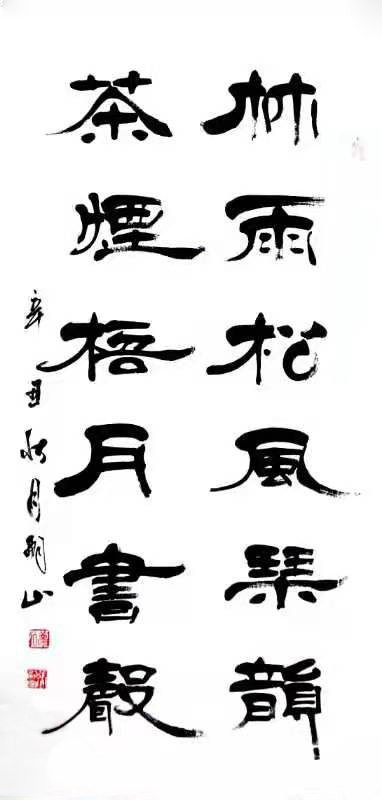 竹雨松風琴韻
茶煙梧月書聲
辛丑秋月
山